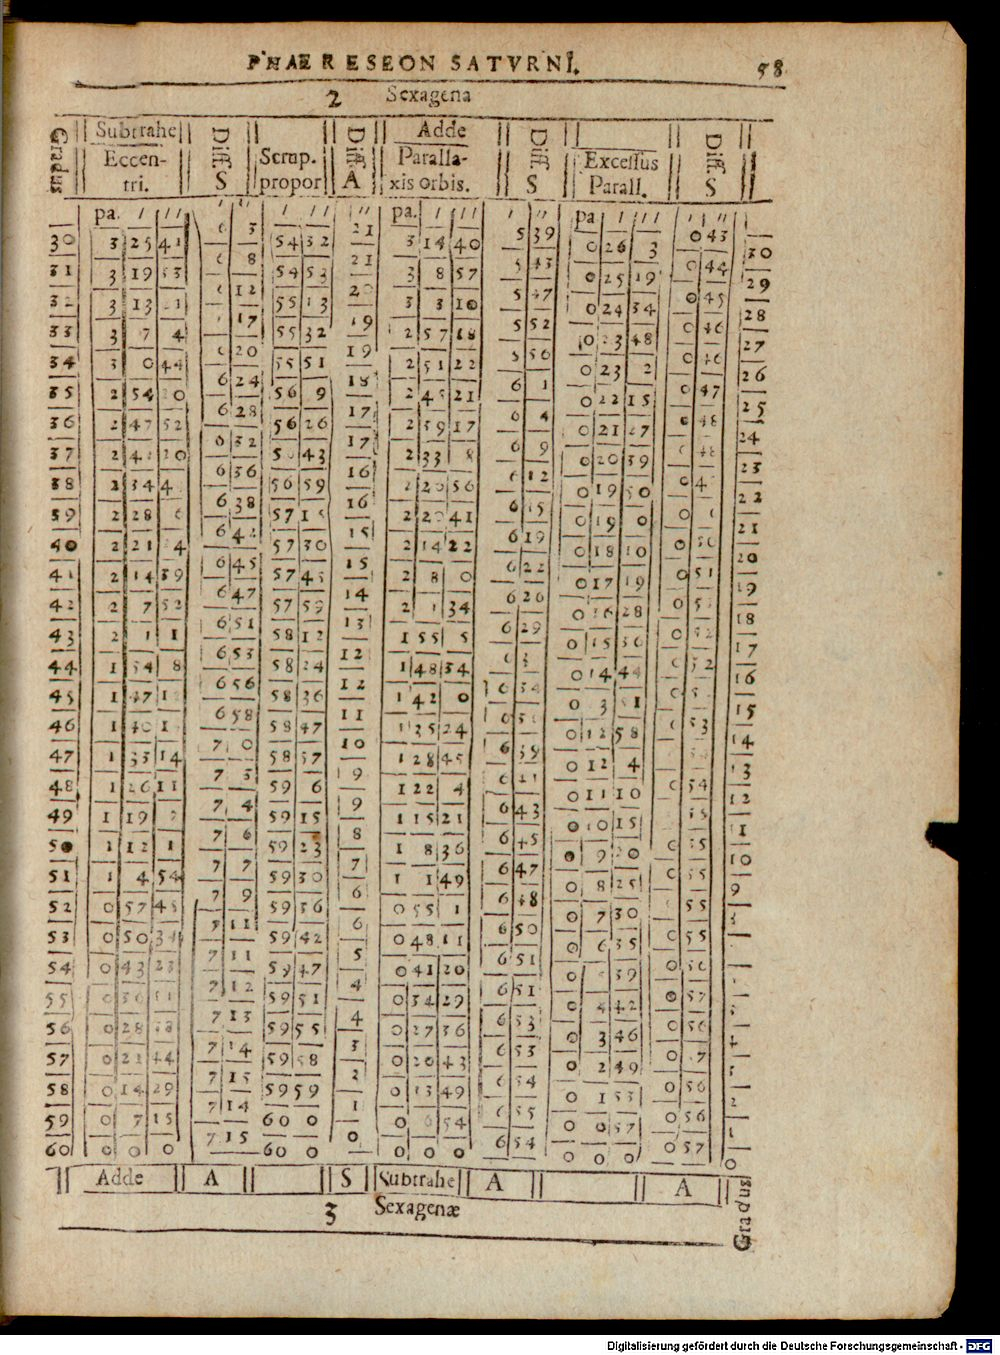 PHAERESEON SATVRNI. 58
2 Sexagena
Gradus Subtrahe Diff. S Scrup. Diff. A Adde Diff. S Excessus Diff. S
Eccen- Paralla- Parall.
tri. propor xis orbis.
pa. ' '' ' '' ' '' '' pa. ' '' ' '' pa ' '' ' ''
30 3 25 41 6 3 54 32 21 3 14 40 5 39 0 26 3 0 43 30
31 3 19 53 8 54 53 21 3 8 57 5 43 0 25 19 0 44 29
32 3 13 12 55 13 3 3 10 5 47 0 24 34 0 45 28
33 3 7 4 17 55 32 19 2 57 18 5 52 0 23 48 0 46 27
34 3 0 44 20 55 51 19 2 51 22 5 56 0 23 2 0 46 26
35 2 54 6 24 56 9 18 2 45 21 6 1 0 22 15 0 47 25
36 2 47 52 6 28 56 26 17 2 39 17 6 4 0 21 27 48 24
37 2 20 32 43 17 2 33 8 6 9 0 20 39 23
38 2 34 6 36 56 59 16 2 56 6 12 0 19 50 0 22
39 2 28 6 38 57 15 16 2 41 6 15 0 19 0 0 21
40 2 21 6 42 57 30 15 2 14 22 6 19 0 18 10 0 50 20
41 2 14 39 6 45 57 45 15 2 8 0 6 22 0 17 19 0 51 19
42 2 7 52 6 47 57 59 14 2 1 34 6 26 0 16 28 0 18
43 2 1 1 6 51 58 12 13 1 55 5 6 29 0 15 36 0 52 17
44 1 54 8 6 53 58 24 12 1 48 34 0 14 44 52 16
45 1 47 6 56 58 36 12 1 42 0 6 34 0 15
46 1 40 6 58 58 47 11 1 35 24 0 12 58 53 14
47 1 33 14 7 0 58 57 10 1 28 45 6 39 0 12 4 13
48 1 26 11 7 3 59 6 9 1 22 4 6 0 11 10 54 12
49 1 19 7 4 59 15 9 1 15 21 6 43 0 10 15 11
50 1 12 1 7 6 59 23 8 1 8 36 6 45 0 9 20 0 55 10
51 1 4 54 7 7 59 30 7 1 1 49 6 47 0 8 25 0 55 9
52 0 57 45 7 9 59 36 6 0 55 1 6 48 0 7 30 0 55
53 0 50 34 11 59 42 6 0 48 11 6 50 0 6 35 0 55
54 0 43 23 7 11 59 47 5 0 41 20 6 51 0 39 0 56
55 0 36 7 12 59 51 4 0 34 29 6 51 0 4 42 0 57
56 0 28 7 13 59 55 4 0 27 36 6 53 0 3 46 0 56
57 0 44 7 14 59 58 3 0 20 43 6 53 0 2 49 0
58 0 14 29 7 15 59 59 2 0 13 49 6 54 0 1 53 0 56 2
59 0 7 15 7 14 60 0 1 0 6 54 6 55 0 0 57 0 56 1
60 0 0 0 7 15 60 0 0 0 0 0 6 54 0 0 0 0 57 0
Adde A S Subtrahe A A Gradus
3 Sexagenæ
Digitalisierung gefördert durch die Deutsche Forschungsgemeinschaft - DFG